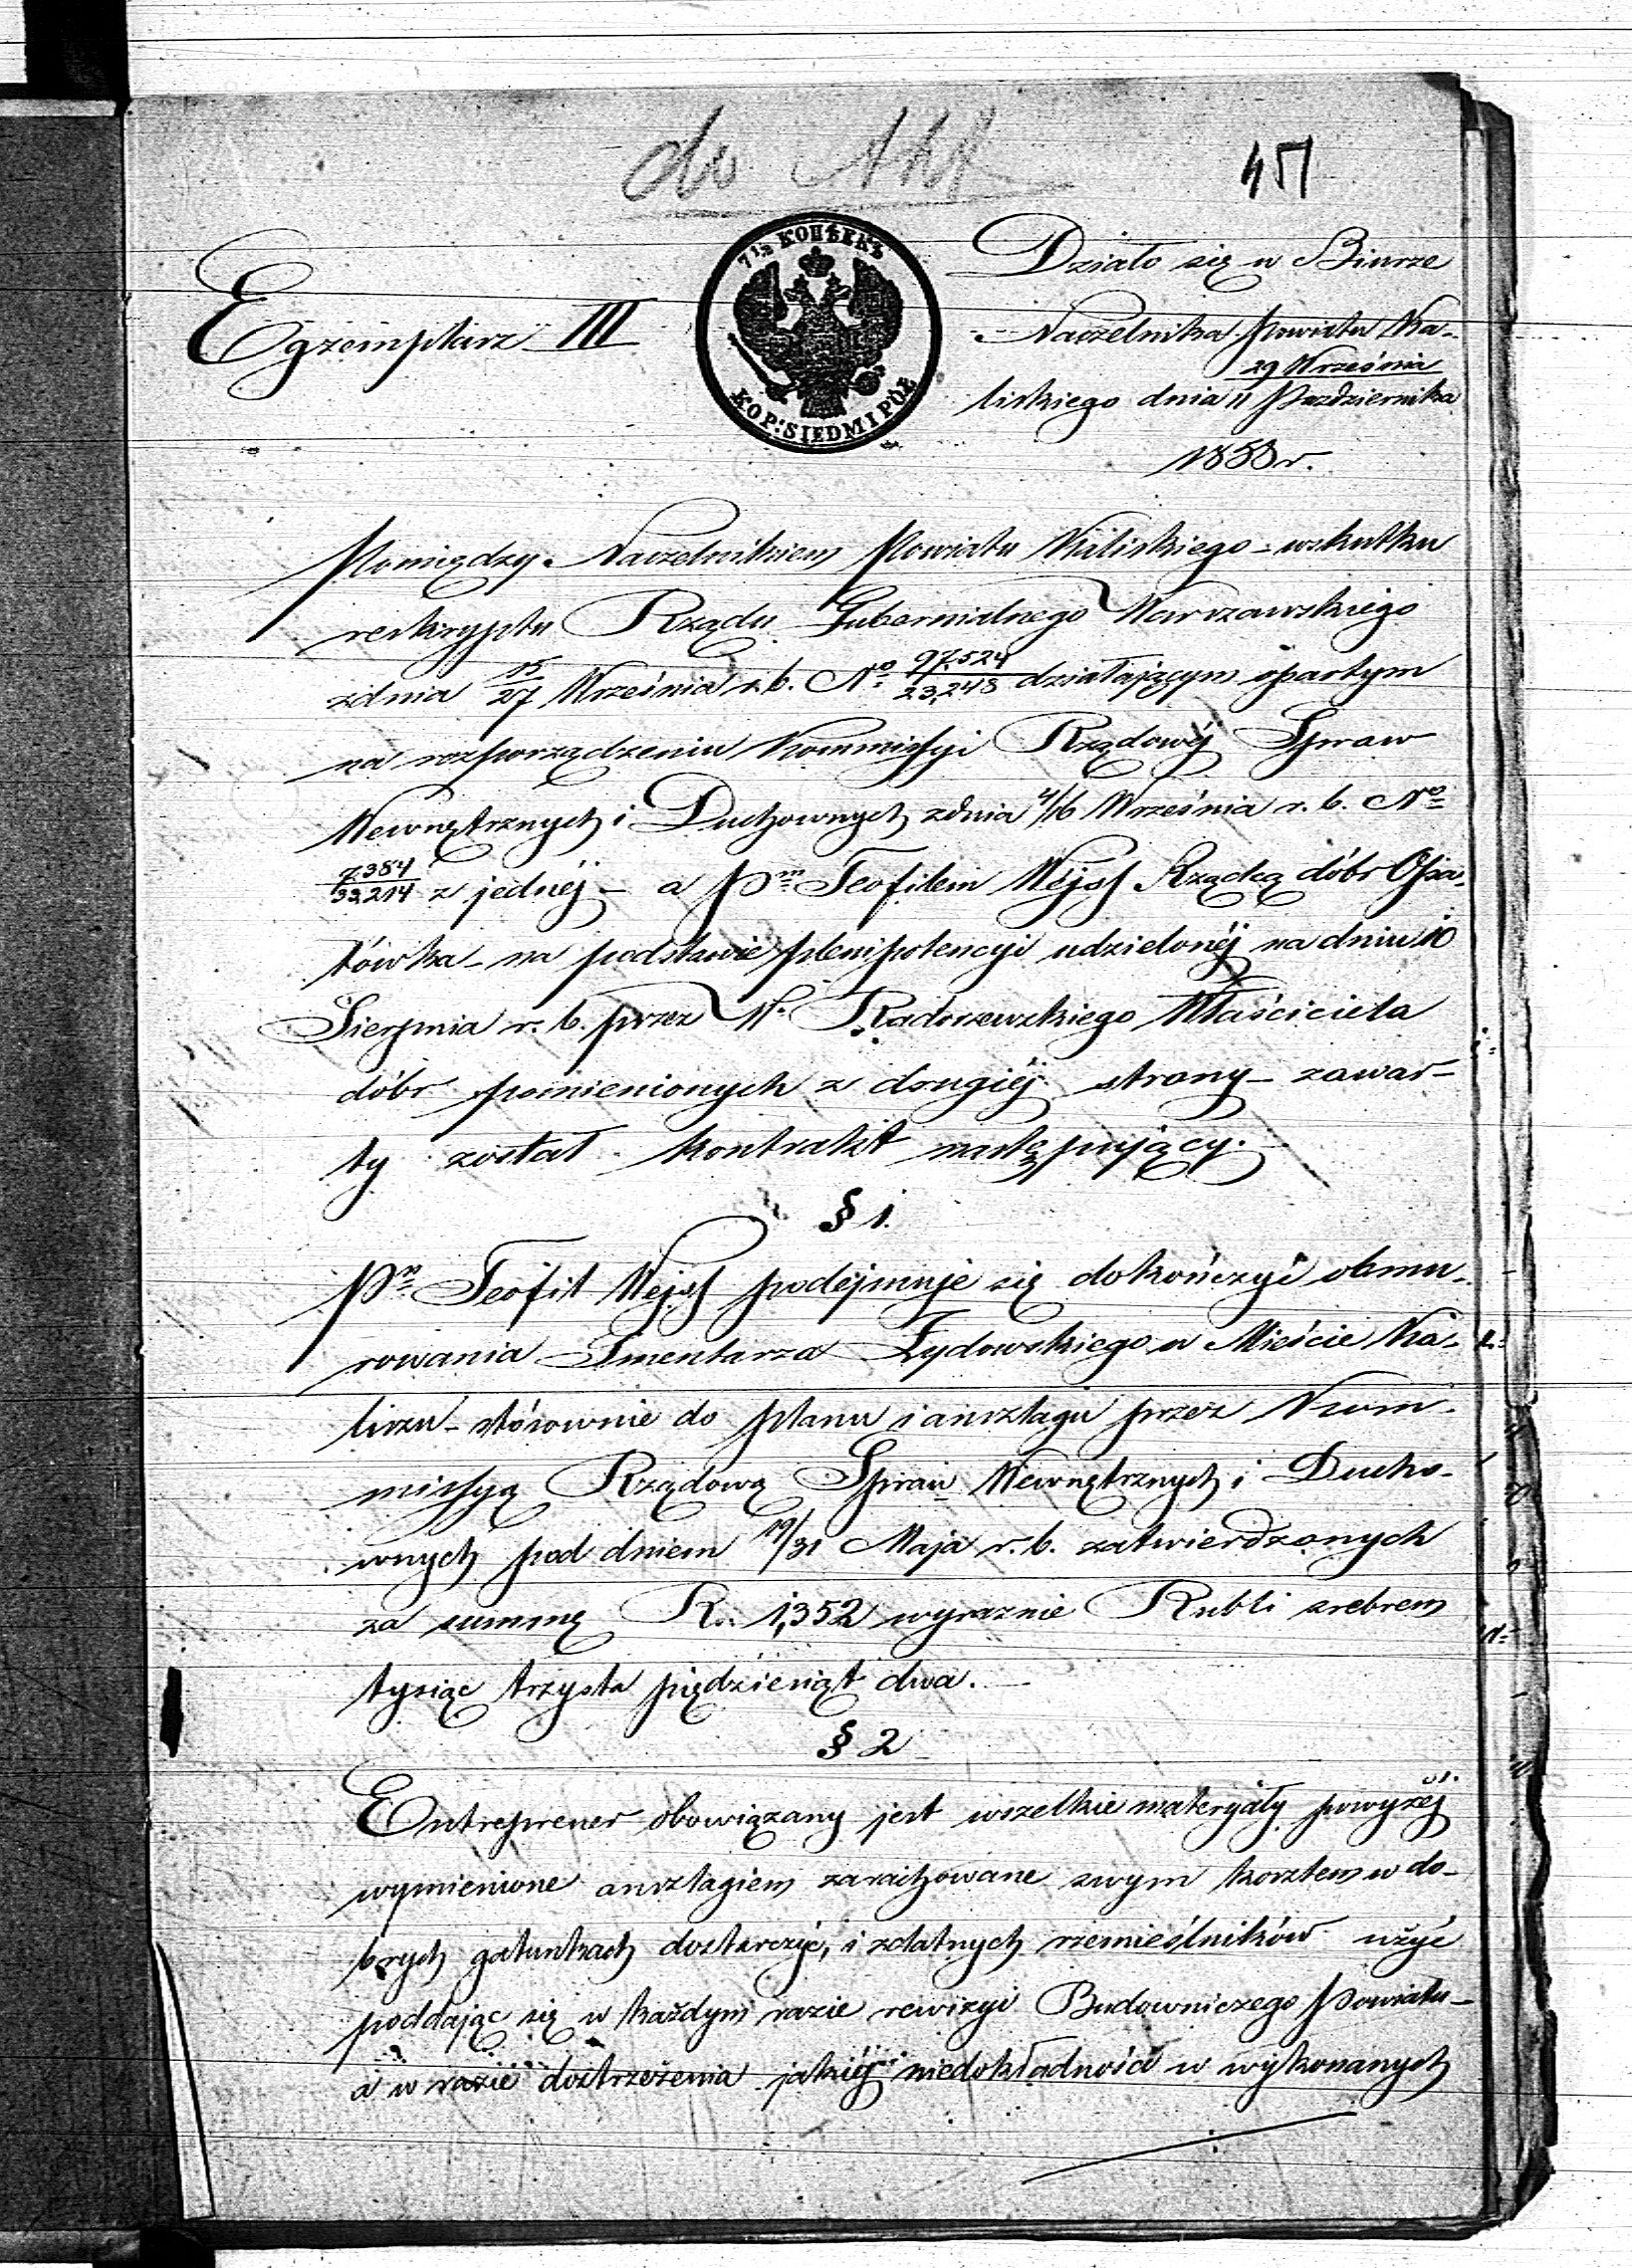 do Akt
457
7½ КОПѢЕКЪ
KOP: SIEDM I PÓŁ
Egzemplarz III
Działo się w Biurze
Naczelnika Powiatu Ka-
29 Września
liskiego dnia 11 Października
1858 r.
Pomiędzy Naczelnikiem Powiatu Kaliskiego - wskutku
reskryptu Rządu Gubernialnego Warszawskiego
z dnia 15/27 Września r. b. No 97,524/23,248 działającym opartym
na rozporządzeniu Kommissyi Rządowéj Spraw
Wewnętrznych i Duchownych z dnia 4/16 Września r. b. No
7,384/33,214 z jednéj - a Pm Teofilem Wejss Rządcą dóbr Opa-
tówka - na podstawie plenipotencyi udzielonéj na dniu 10
Sierpnia r. b. przez W. Radoszewskiego Właściciela
dóbr pomienionych z drugiéj strony - zawar-
ty został kontrakt następujący.
§ 1.
Pn Teofil Wejss podéjmuje się dokończyć obmu-
rowania Smentarza Żydowskiego w Mieście Ka-
liszu - stósownie do planu i anszlagu przez Kom-
missyą Rządową Spraw Wewnętrznych i Ducho-
wnych pod dniem 19/31 Maja r. b. zatwierdzonych
za summę R. 1,352 wyraznie Rubli srebrem
tysiąc trzysta piędziesiąt dwa.
§ 2
Entreprener obowiązany jest wszelkie materyały powyżéj
wymienione anszlagiem zarachowane swym kosztem w do-
brych gatunkach dostarczyć, i zdatnych rzemieślników użyć
poddając się w każdym razie rewizyi Budowniczego Powiatu -
a w razie dostrzeżenia jakiéj niedokładności w wykonanych